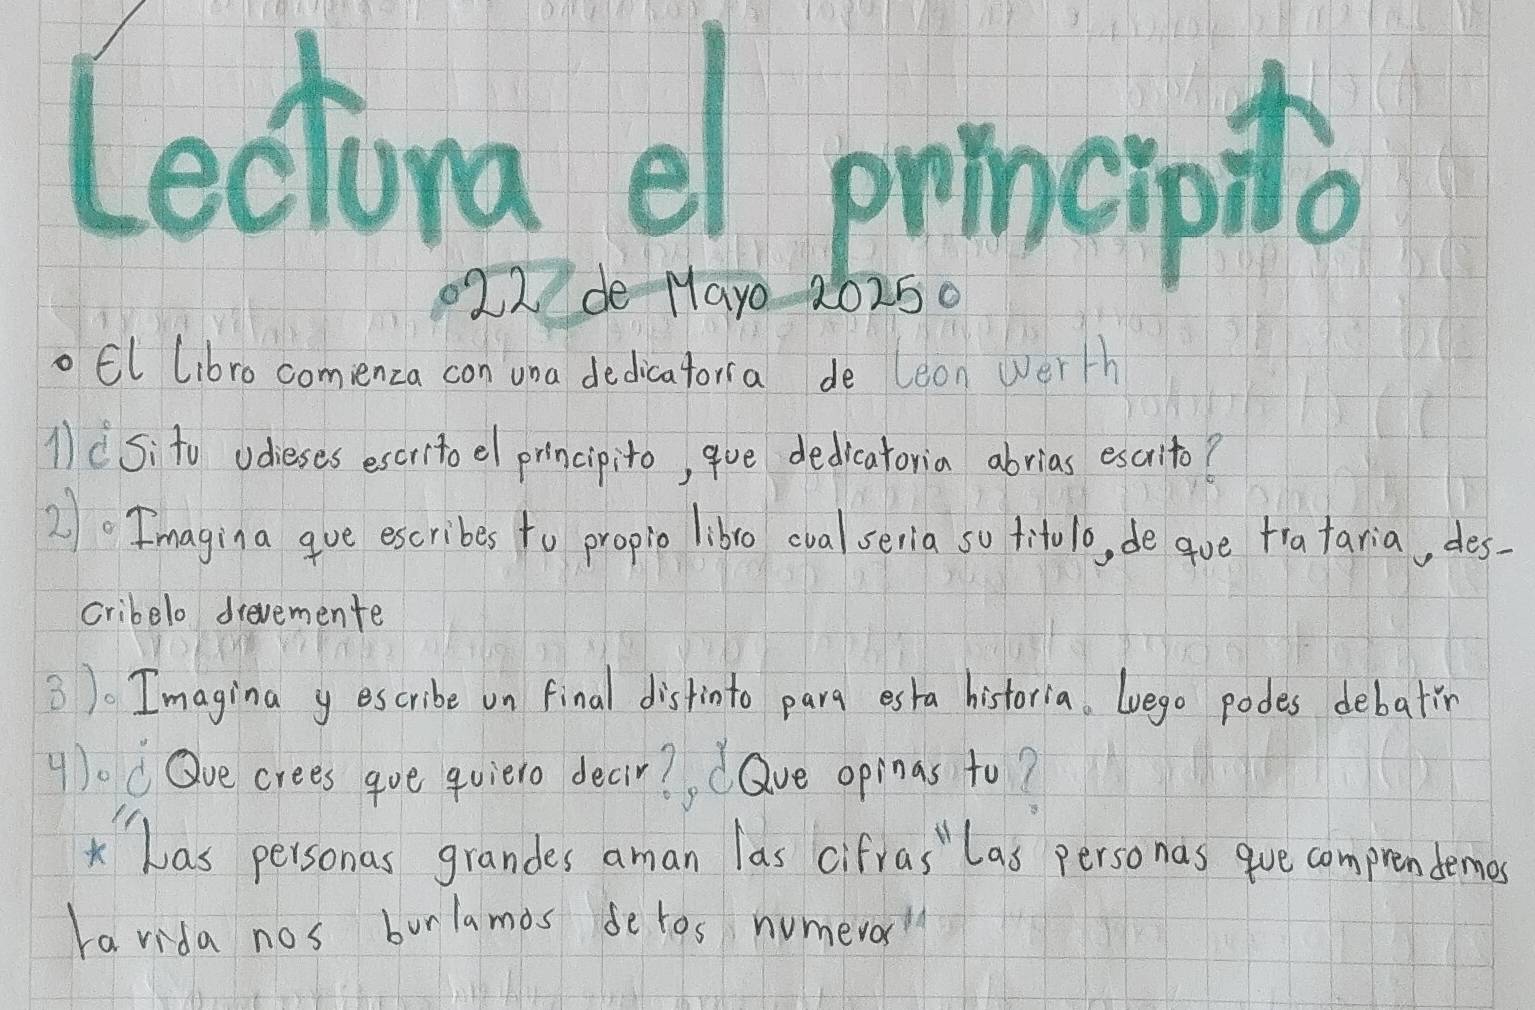 Lectura el principito
22 de Mayo 2025
El libro comienza con una dedicatoria de Leon Werth
1) ¿Si tu udieses escrito el principito, que dedicatoria abrias escrito?
2) Imagina que escribes tu propio libro cual seria su titulo, de que trataria, des-
cribelo drevemente
3). Imagina y escribe un final distinto para esta historia. Luego podes debatir
4). ¿Que crees que quiero decir?, ¿Que opinas tu?
* "Las personas grandes aman las cifras" Las personas que comprendemos
la vida nos burlamos de los numeros"